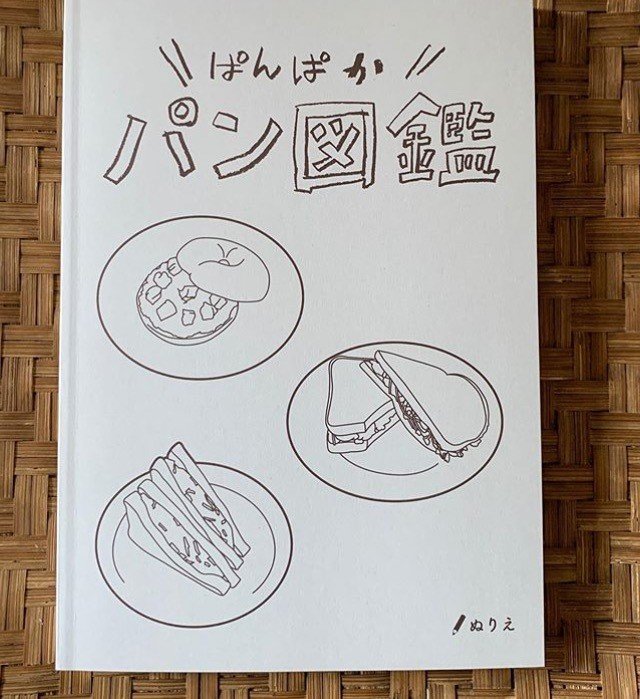 ぱんぱか
パン図鑑
ぬりえ